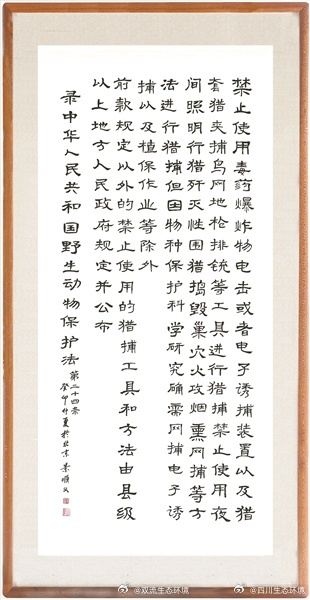 禁止使用毒药爆炸物电击或者电子诱捕装置以及猎
套猎夹捕鸟网地枪排铳等工具进行猎捕禁止使用夜
间照明行猎歼灭性围猎捣毁巢穴火攻烟熏网捕等方
法进行猎捕但因物种保护科学研究确需网捕电子诱
捕以及植保作业等除外
前款规定以外的禁止使用的猎捕工具和方法由县级
以上地方人民政府规定并公布
录中华人民共和国野生动物保护法
第二十四条
癸卯竹夏於北京
@双流生态环境
@四川生态环境